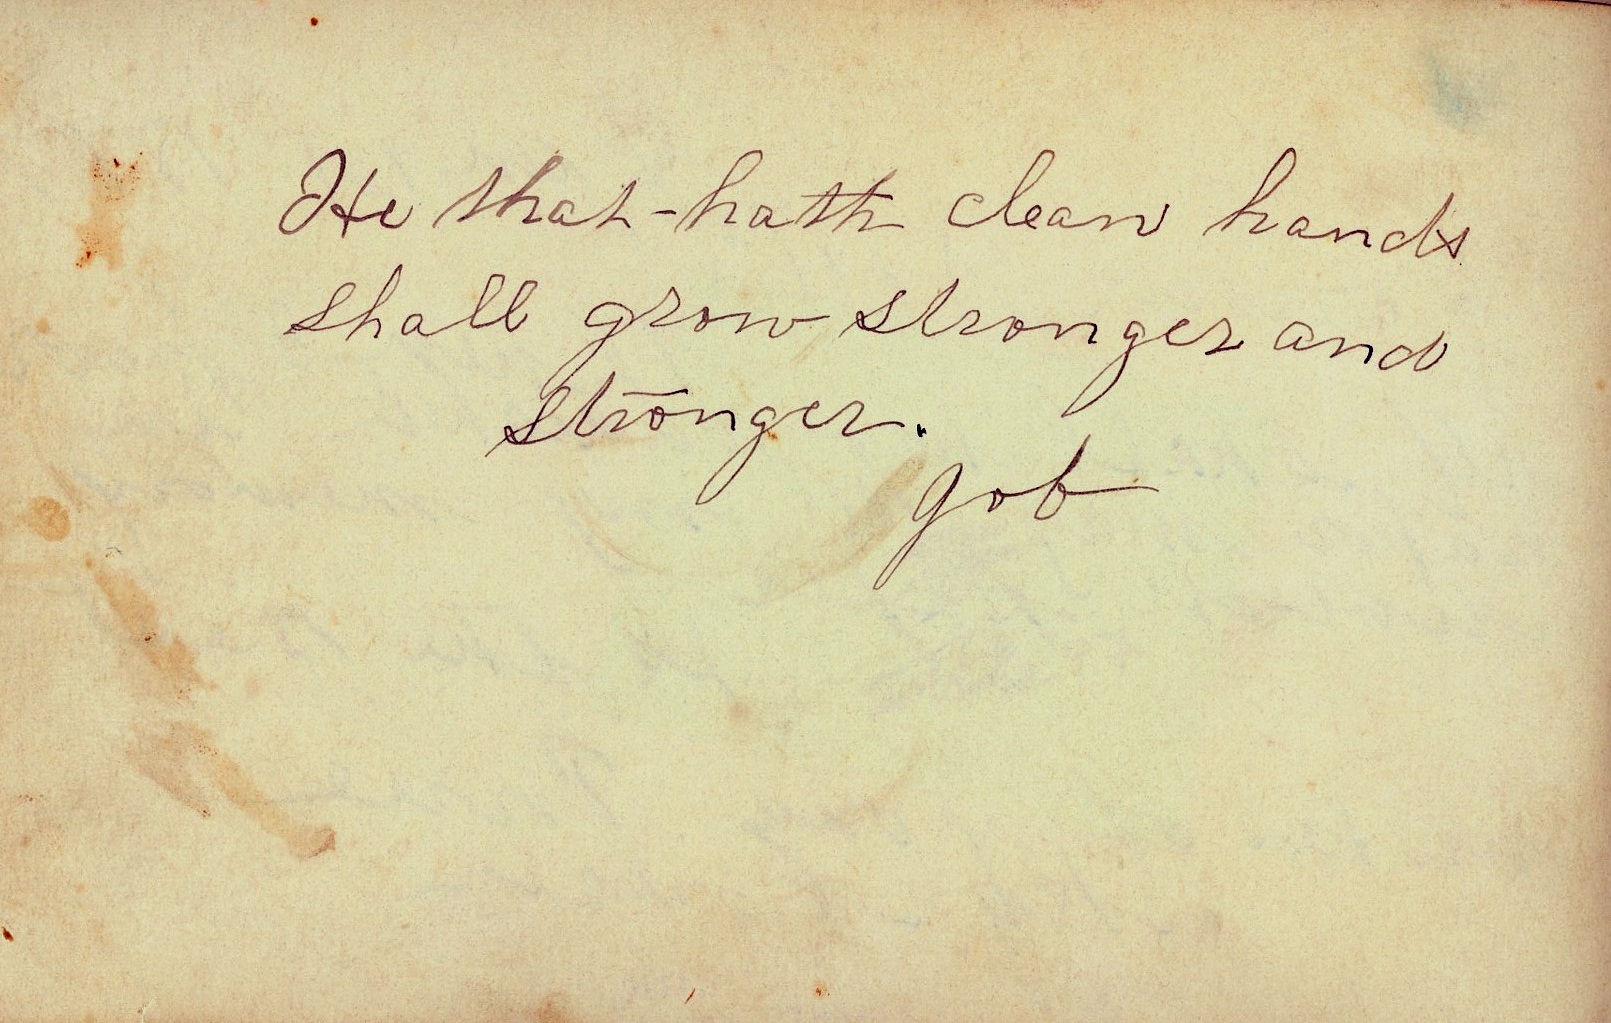 He that hath clean hands
shall grow stronger and
stronger.
Job